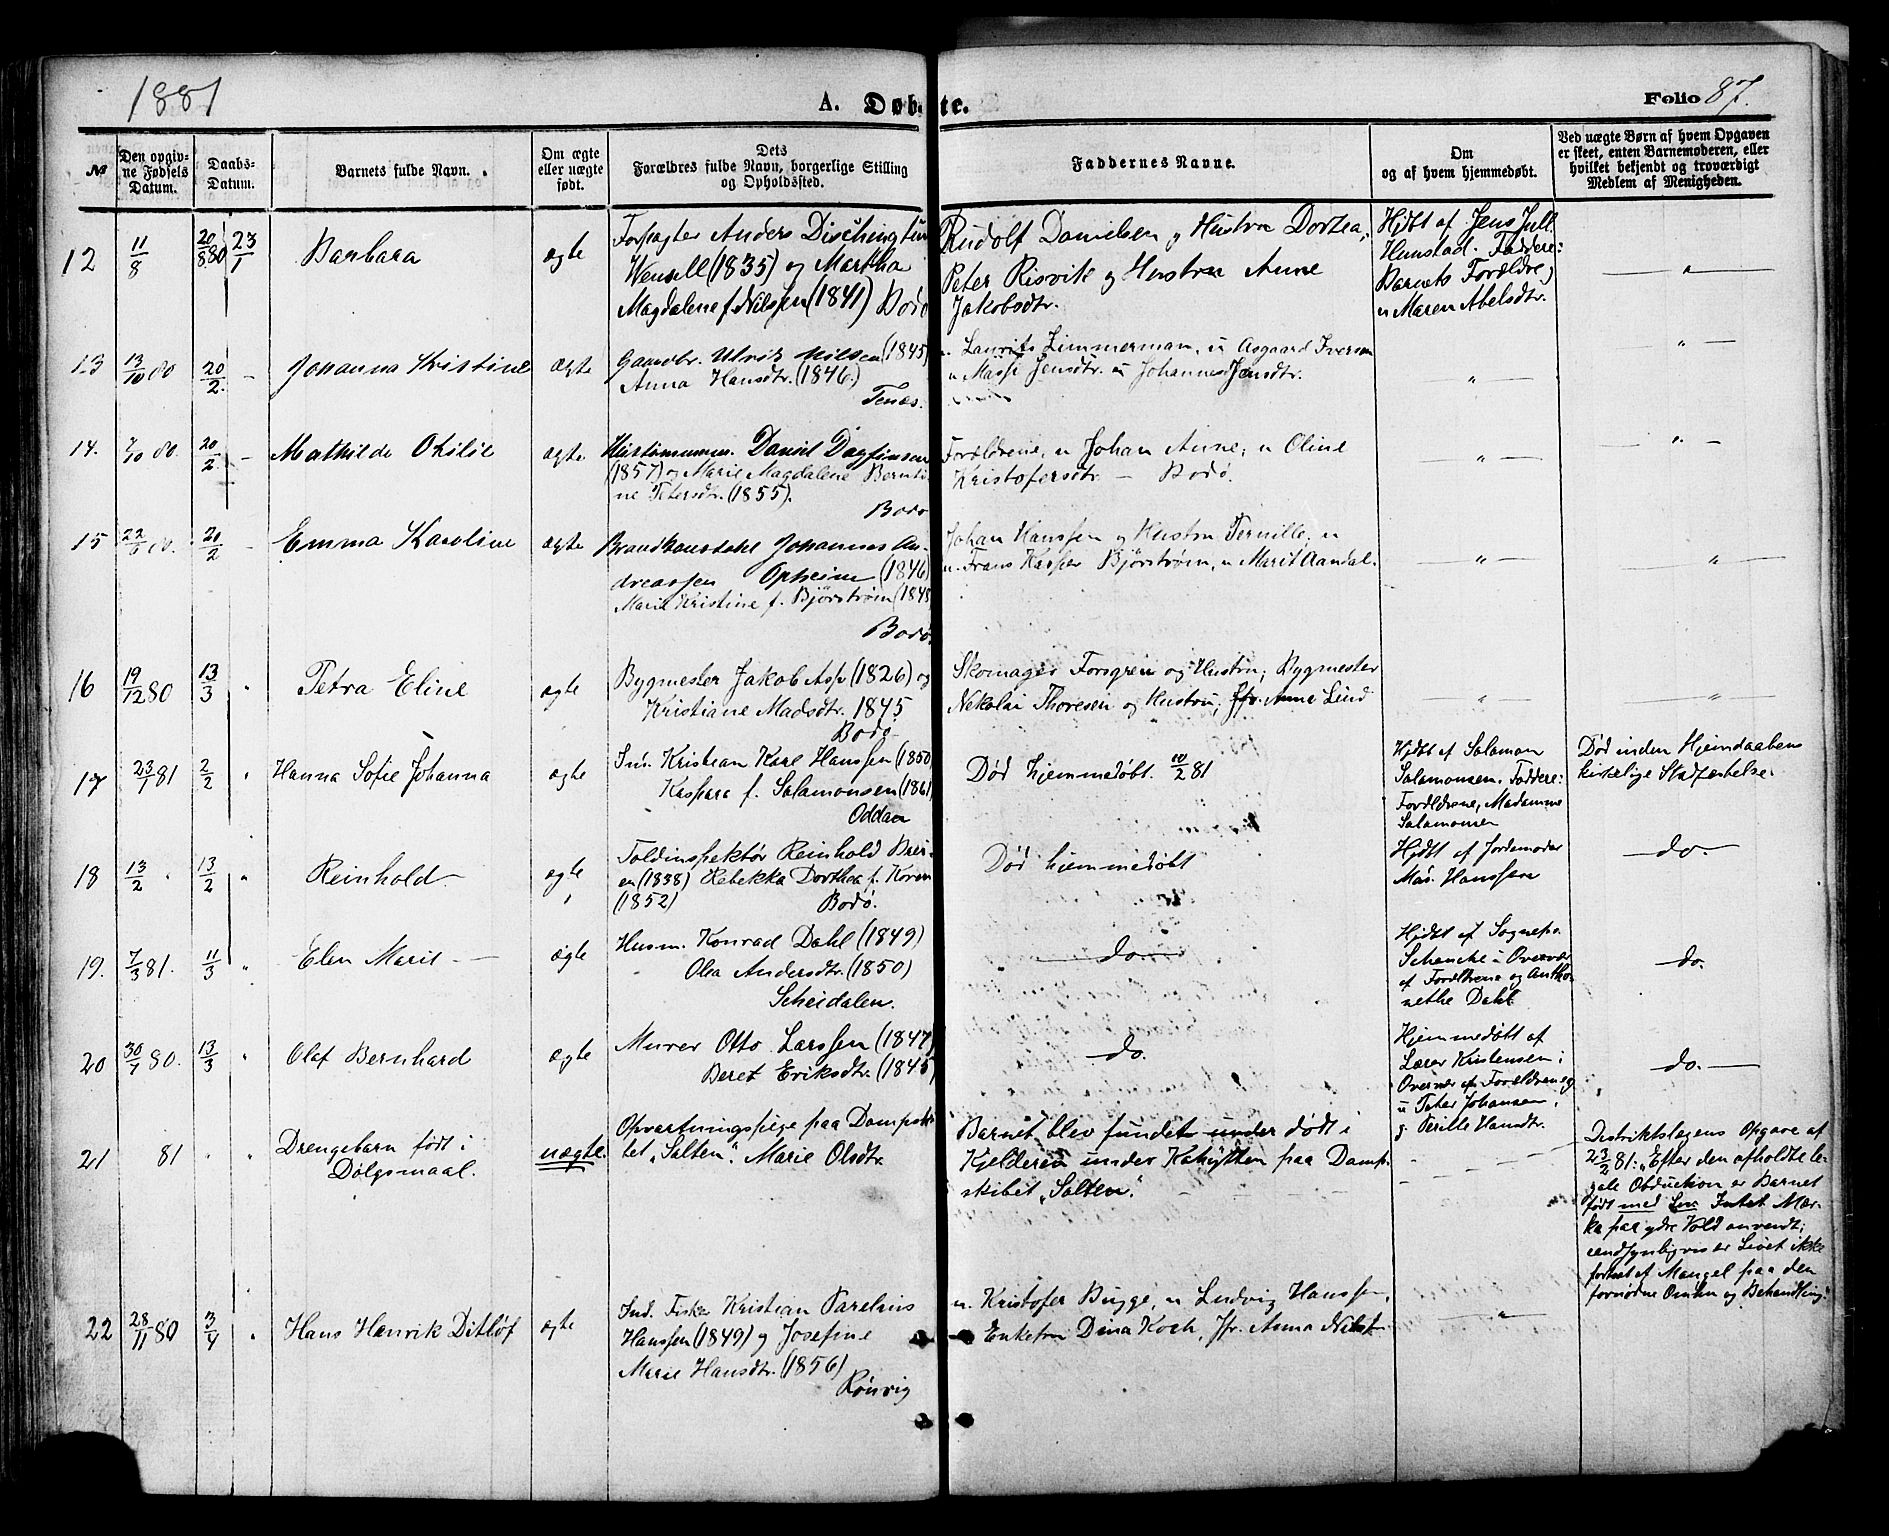 1881
A. Døbte.
Folio 87.
№
Den opgiv-
ne Fødsels
Datum.
Daabs-
Datum.
Barnets fulde Navn.
Om ægte
eller uægte
født.
Dets
Forældres fulde Navn, borgerlige Stilling
og Opholdssted.
Faddernes Navne.
Om
og af hvem hjemmedøbt.
Ved uægte Børn af hvem Opgaven
er skeet, enten Barnemoderen, eller
hvilket bekjendt og troværdigt
Medlem af Menigheden.
12
11/8
20/8 80 23/1
Barbara
ægte
Forpagter Anders Disch
Wensell (1835) og Martha
Magdalene f. Nilsen (1841) Bodø
Rudolf Danielsen og Hustru Dortea;
Peter Risvik og Hustru Anne
Jakobsdtr.
Hjdbt af Jens Jull
Hunstad. Faddere:
Barnets Forældre og
u Maren Abelsdtr.
— " —
13
13/10 80
20/2 —
Johanna Kristine
ægte
Gaardbr. Ulrik Nilsen (1845)
Anna Hansdtr. (1846)
Tenæs.
u. Laurits Zimmerman, u Asgaard Iversen
u Jensdtr. u Johanna Jensdtr.
— " —
— " —
14.
7/10 80.
20/2 —
Mathilde Otilie
ægte
Daniel Dagfinsen
(1857) og Marie Magdalene Bernti-
ne Petersdtr. (1855).
Bodø
Forældrene, u Johan Arne, u Oline
Kristofersdtr — Bodø.
— " —
— " —
15
22/ 80.
20/2 —
Emma Karoline
ægte
Brandkonstabl Johannes An-
dreassen Opheim (1846)
Marie Kristine f. Bjørstrøm (1848
Bodø.
Johan Hanssen og Hustru Pernille, u
u. Frans Kasper Bjørstrøm, u Marit Aandal.
— " —
— " —
16
19/12 80
13/3 "
Petra Eline
ægte
Bygmester Jakob Asp (1826) og
Kristiane Madsdtr. 1845
Bodø
Skomager Forsgren og Hustru; Bygmester
Nikolai Thoresen og Hustru; Jfr. Anne Lind
— " —
— " —
17
23/1 81
2/2 "
Hanna Sofie Johanna
ægte
Ind. Kristian Karl Hanssen (1850
Kaspara f. Salamonsen (1861)
Oddan
Død hjemmedøbt. 10/2 81
Hjdbt af Salamon
Salamonsen. Faddere:
Forældrene, Madamme
Salamonsen
Død inden Hjemdaabens
kirkelige Stadfæstelse.
18
13/2 "
13/2 "
Reinhold
ægte
Toldinspektør Reinhold Brei-
en (1838) Rebekka Dorthea f. Koren
(1852) Bodø.
Død hjemmedøbt
Hjdbt af Jordemoder
Mad. Hanssen
— do. —
19.
7/3 81.
11/3 "
Elen Marie —
ægte
Husm. Konrad Dahl (1849)
Olea Andersdtr. (1850)
Scheidalen.
— do —
Hjdbt af Sognepr.
Schancke i Overvær
af Forældrene og Antho-
nethe Dahl
— do.
20
30/ 80.
13/3 "
Olaf Bernhard
ægte
Murer Otto Larssen (1847)
Beret Eriksdtr. (1845)
— do.
Hjemmedøbt af
Lærer Kristensen i
Overvær af Forældrene og
u Peter Johansen,
g. Pernille Hansdtr.
do. —
21
81
" "
Drengebarn født i
Dølgsmaal.
uægte.
Opvartningspige paa Dampski-
bet „Salten“. Marie Olsdtr.
Barnet blev fundet under dødt i
Kjelderen under Kahytten paa Damp-
skibet „Salten“.
Distriktslægens Opgave af
23/2 81: „Efter den afholdte le-
gale Obduction er Barnet
født med Liv Intet Mær-
ke paa ydre Vold anvendt;
sandsynligvis er Livet ikke
fortsat af Mangel paa den
fornødne Omhu og Behandling“.
22
28/11 80
3/4 "
Hans Henrik Ditlof
ægte
Ind. Fisker Kristian Parelius
Hanssen (1849) og Josefine
Marie Hansdtr. (1856)
Rønvig
u. Kristofer Bugge, u Ludvig Hanssen,
Enkefru Dina Koch, Jfr. Anna
— " —